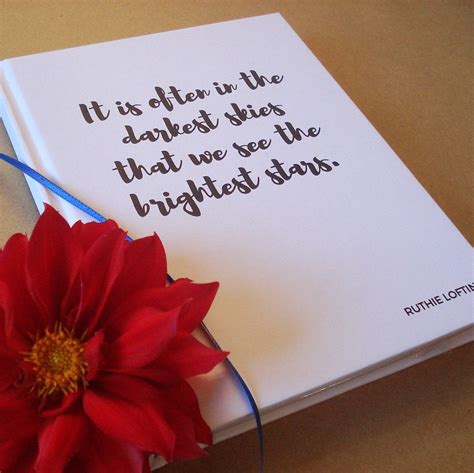 It is often in the
darkest skies
that we see the
brightest stars.
RUTHIE LOFTIN